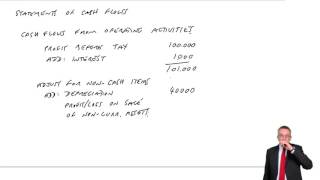 STATEMENTS OF CASH FLOWS
CASH FLOWS FROM OPERATING ACTIVITIES
PROFIT BEFORE TAX 100.000
ADD: INTEREST 1000
101.000
ADJUST FOR NON-CASH ITEMS
ADD: DEPRECIATION 40000
PROFIT/LOSS ON SALE
OF NON-CURR. ASSETS